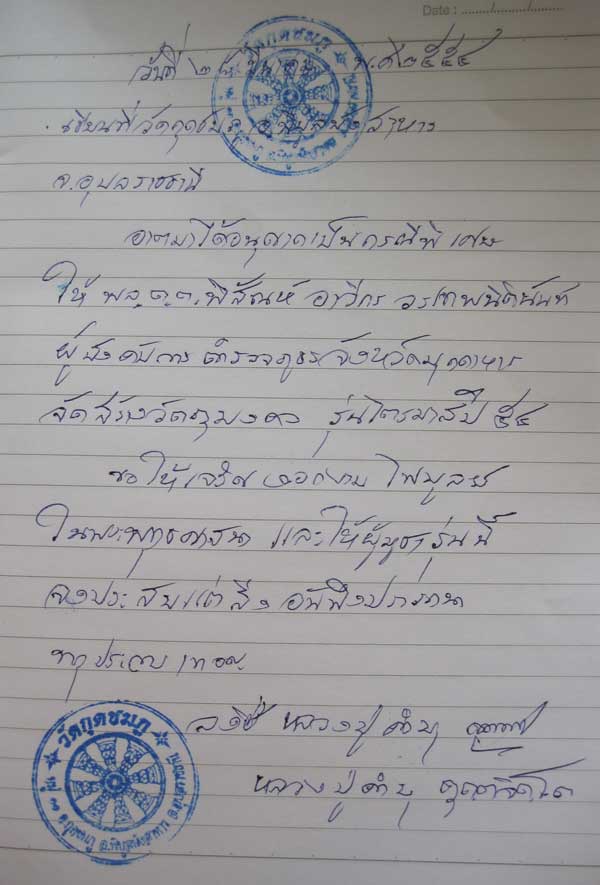 Date : ......../......../........
วันที่ ๒๕ มีนาคม พ.ศ ๒๕๕๔
เขียนที่วัดกุดชมภู อ.พิบูลมังสาหาร
จ.อุบลราชธานี
อาตมาได้อนุญาตเป็นกรณีพิเศษ
ให้ พล.ต.ต.พิสัณห์ อาวีกร วรเทพนิตินันท์
ผู้บังคับการตำรวจภูธรจังหวัดมุกดาหาร
จัดสร้างวัตถุมงคล รุ่นไตรมาสปี ๕๔
ขอให้เจริญงอกงาม ไพบูลย์
ในพระพุทธศาสนา และให้ผู้บูชารุ่นนี้
จงประสบแต่สิ่งอันพึงปรารถนา
ทุกประการ เทอญ
ลงชื่อ หลวงปู่คำบุ
หลวงปู่คำบุ คุตฺตจิตฺโต
วัดกุดชมภู